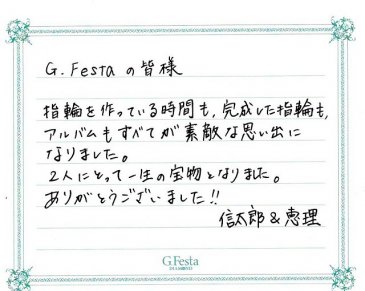 G.Festa の皆様
指輪を作っている時間も,完成した指輪も,
アルバムもすべてが素敵な思い出に
なりました。
2人にとって一生の宝物となりました。
ありがとうございました!!
信太郎&恵理
G.Festa
DIAMOND